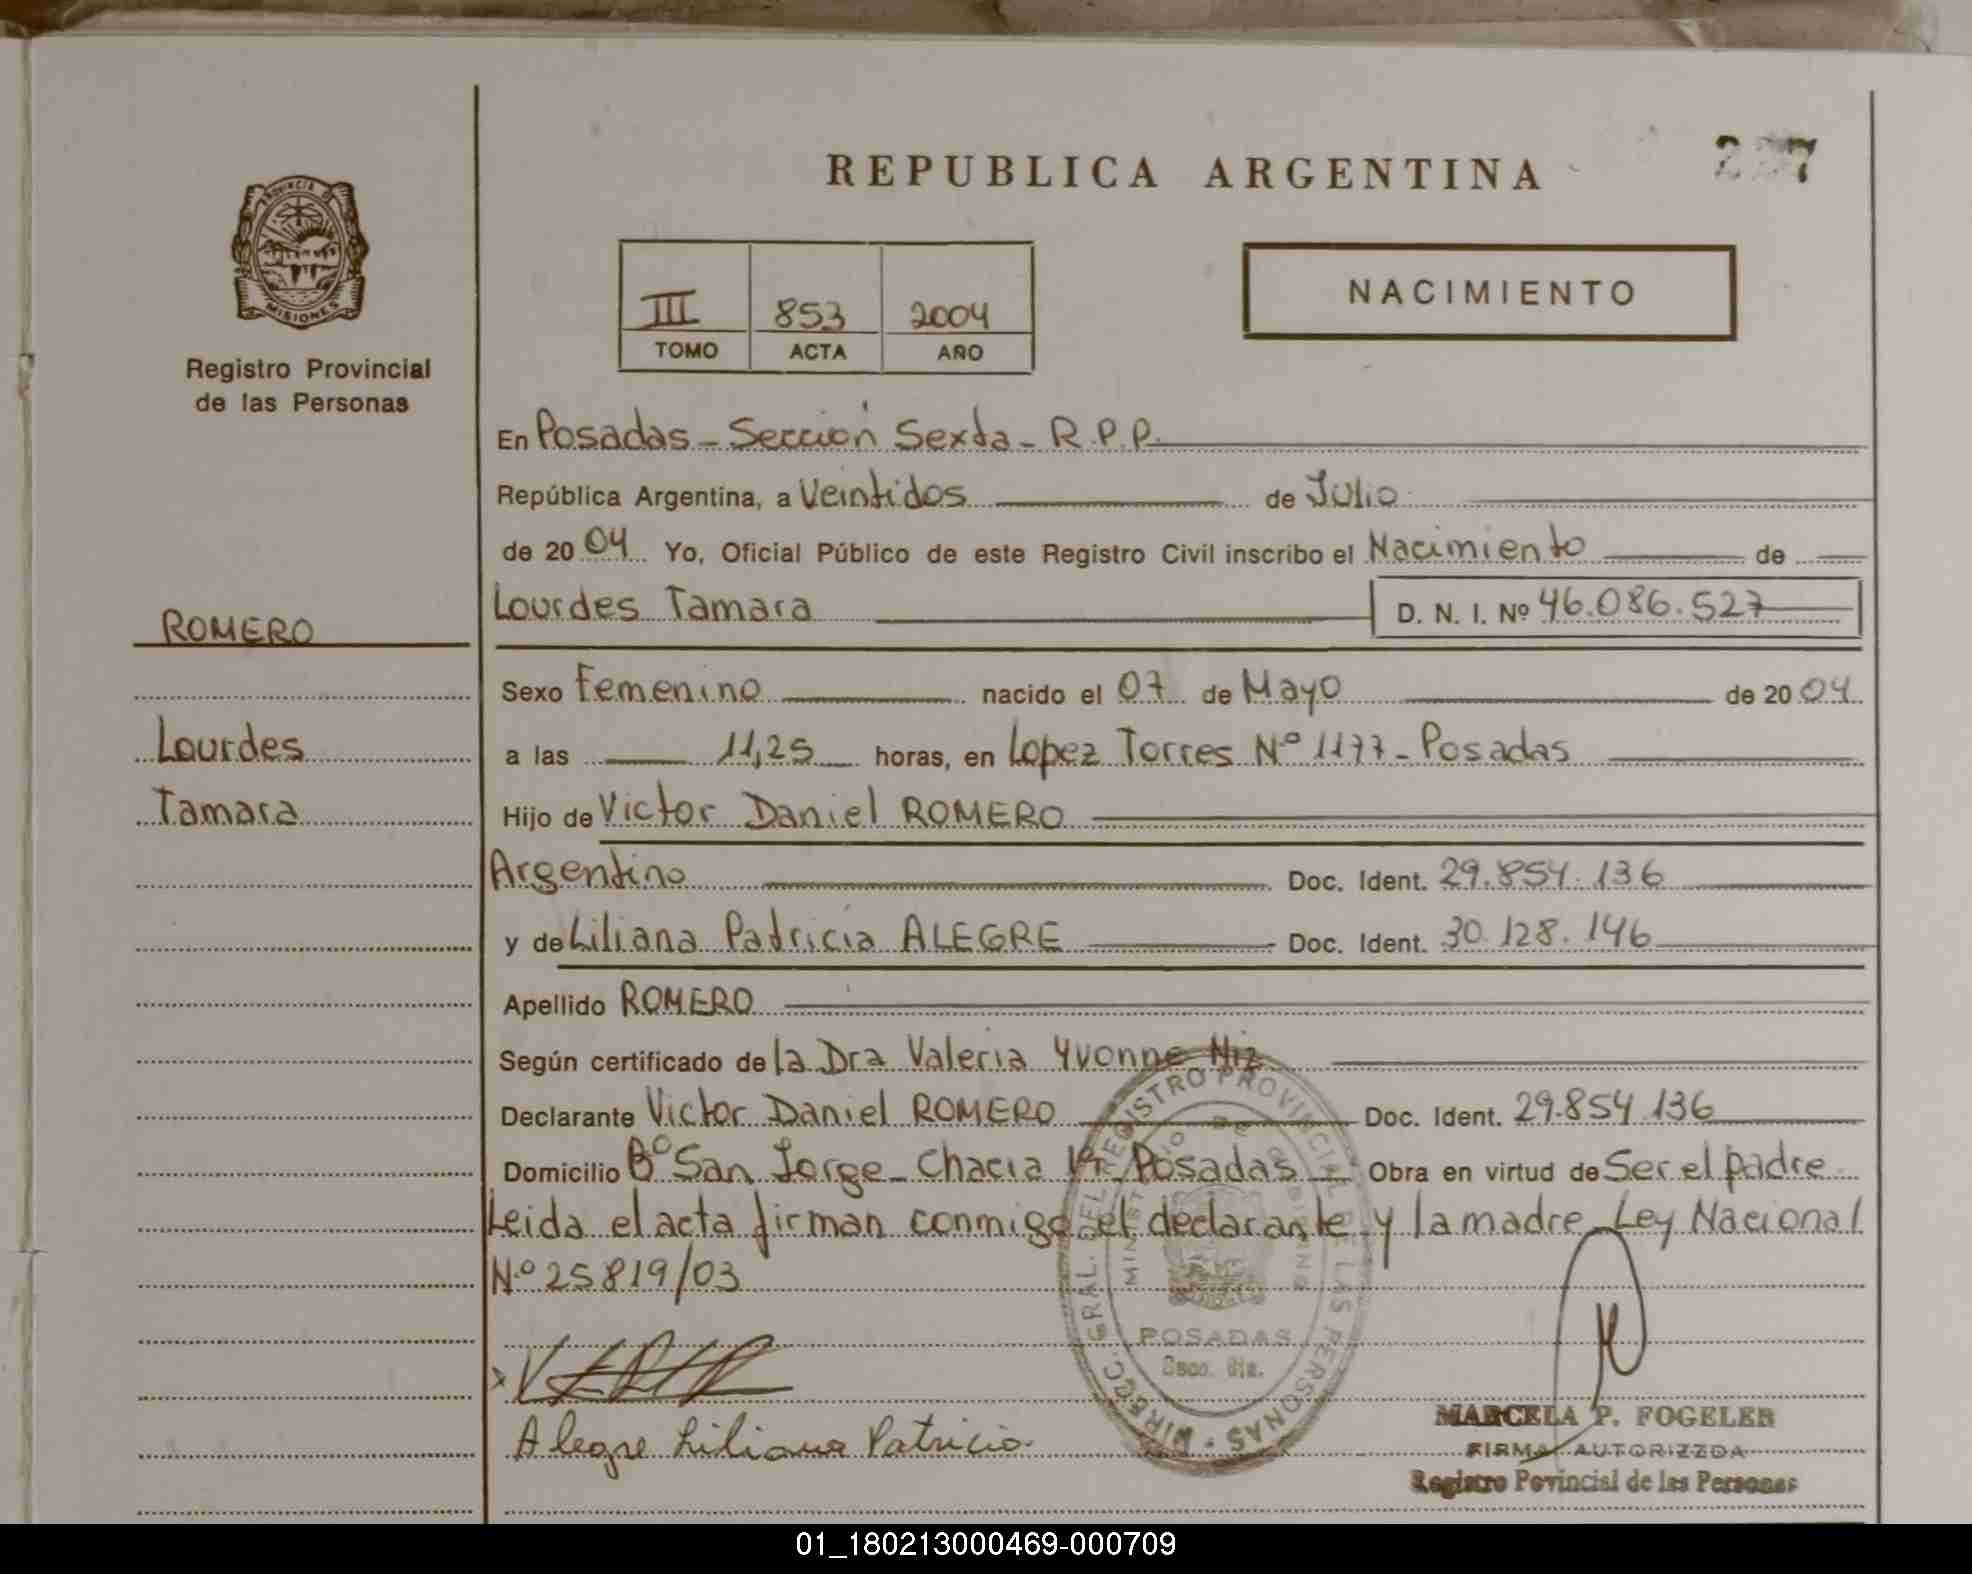 REPUBLICA ARGENTINA
PROVINCIA DE
MISIONES
Registro Provincial
de las Personas
III 853 2004
TOMO ACTA AÑO
NACIMIENTO
En Posadas - Sección Sexta - R.P.P.
República Argentina, a Veintidos de Julio
de 2004 Yo, Oficial Público de este Registro Civil inscribo el Nacimiento de
Lourdes Tamara D. N. I. Nº 46.086.527
ROMERO
Lourdes
Tamara
Sexo Femenino nacido el 07 de Mayo de 2004
a las 11,25 horas, en Lopez Torres Nº 1177 - Posadas
Hijo de Victor Daniel ROMERO
Argentino Doc. Ident. 29.854.136
y de Liliana Patricia ALEGRE Doc. Ident. 30.128.146
Apellido ROMERO
Según certificado de la Dra Valeria Yvonne Niz
Declarante Victor Daniel ROMERO Doc. Ident. 29.854.136
Domicilio Bº San Jorge - Chacra Posadas Obra en virtud de Ser el padre
Leida el acta firman conmigo el declarante y la madre. Ley Nacional
N.º 25819/03
DIRECC. GRAL. DEL REGISTRO PROVINCIAL DE LAS PERSONAS
MINISTERIO DE GOBIERNO
POSADAS
Alegre Liliana Patricia
MARCELA P. FOGELER
FIRMA AUTORIZZDA
Registro Povincial de las Personas
01_180213000469-000709